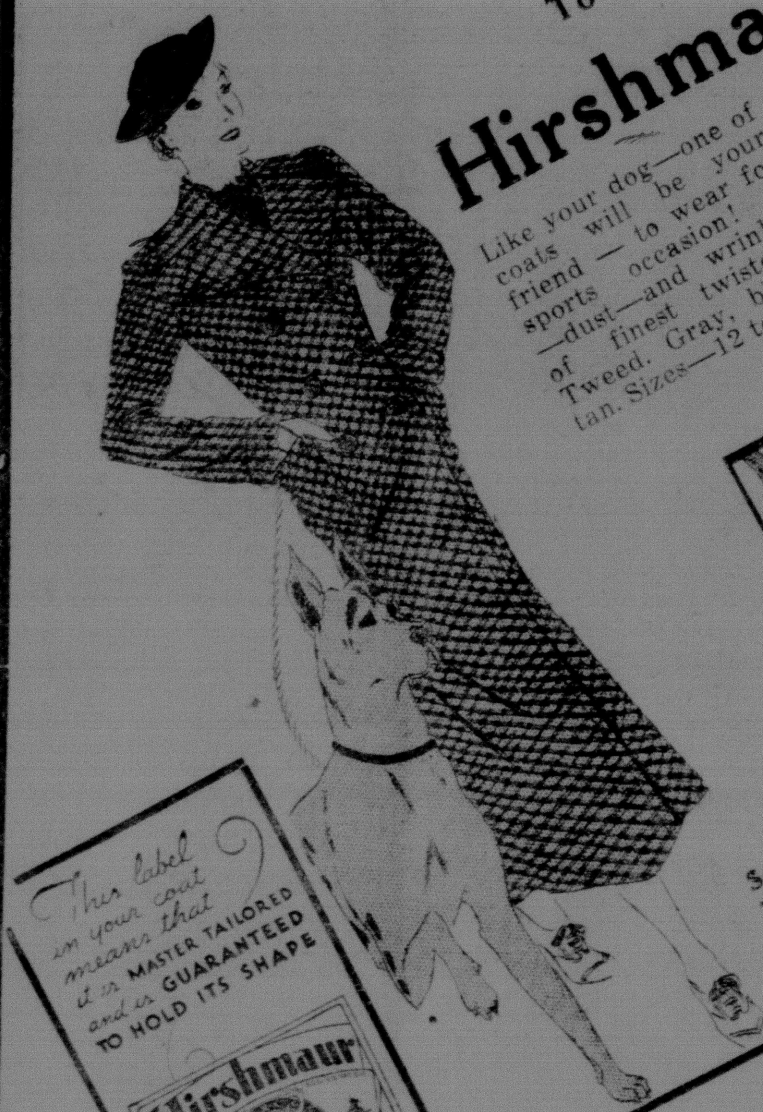 To
Hirshma
Like your dog—one of
coats will be your
friend — to wear fo
sports occasion!
—dust—and wrinkl
of finest twiste
Tweed. Gray, b
tan. Sizes—12 to
S
This label
in your coat
means that
it is MASTER TAILORED
and is GUARANTEED
TO HOLD ITS SHAPE
Hirshmaur